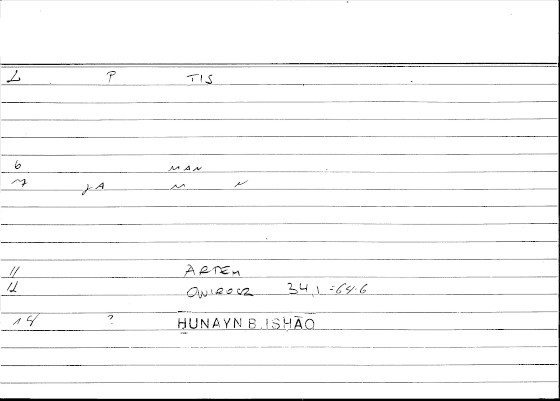 L P TIS
6 MAN
7 JA M N
11 ARTEM
12 ONIROCR 34,1 = 64.6
14 ? ḤUNAYN B. ISḤĀQ